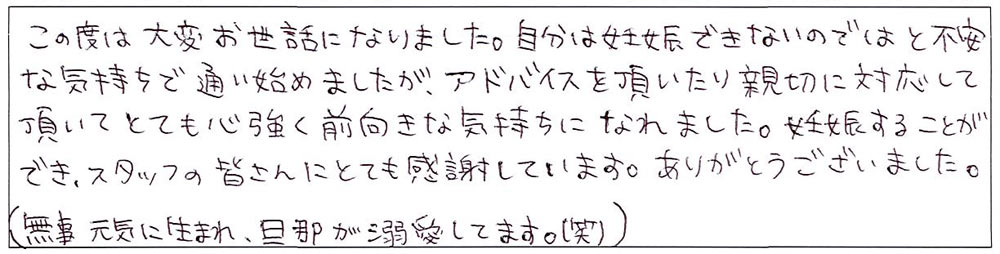 この度は大変お世話になりました。自分は妊娠できないのではと不安
な気持ちで通い始めましたが、アドバイスを頂いたり親切に対応して
頂いてとても心強く前向きな気持ちになれました。妊娠することが
でき、スタッフの皆さんにとても感謝しています。ありがとうございました。
(無事元気に生まれ、旦那が溺愛してます。(笑))